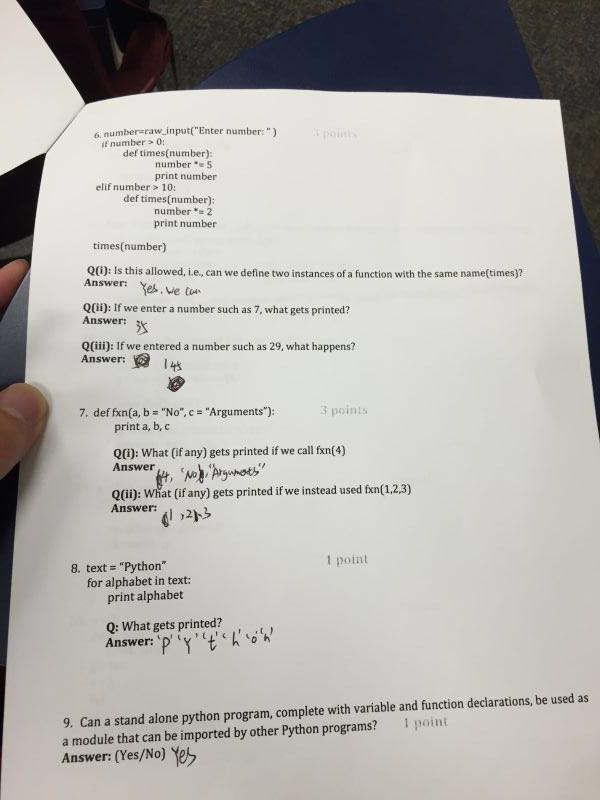 6. number=raw_input("Enter number: ") 3 points
if number > 0:
def times(number):
number *= 5
print number
elif number > 10:
def times(number):
number *= 2
print number
times(number)
Q(i): Is this allowed, i.e., can we define two instances of a function with the same name(times)?
Answer: Yes. we can
Q(ii): If we enter a number such as 7, what gets printed?
Answer: 35
Q(iii): If we entered a number such as 29, what happens?
Answer: 145
7. def fxn(a, b = "No", c = "Arguments"): 3 points
print a, b, c
Q(i): What (if any) gets printed if we call fxn(4)
Answer 4, 'No', "Arguments"
Q(ii): What (if any) gets printed if we instead used fxn(1,2,3)
Answer: 1, 2, 3
8. text = "Python" 1 point
for alphabet in text:
print alphabet
Q: What gets printed?
Answer: 'P' 'y' 't' 'h' 'o' 'n'
9. Can a stand alone python program, complete with variable and function declarations, be used as
a module that can be imported by other Python programs? 1 point
Answer: (Yes/No) Yes